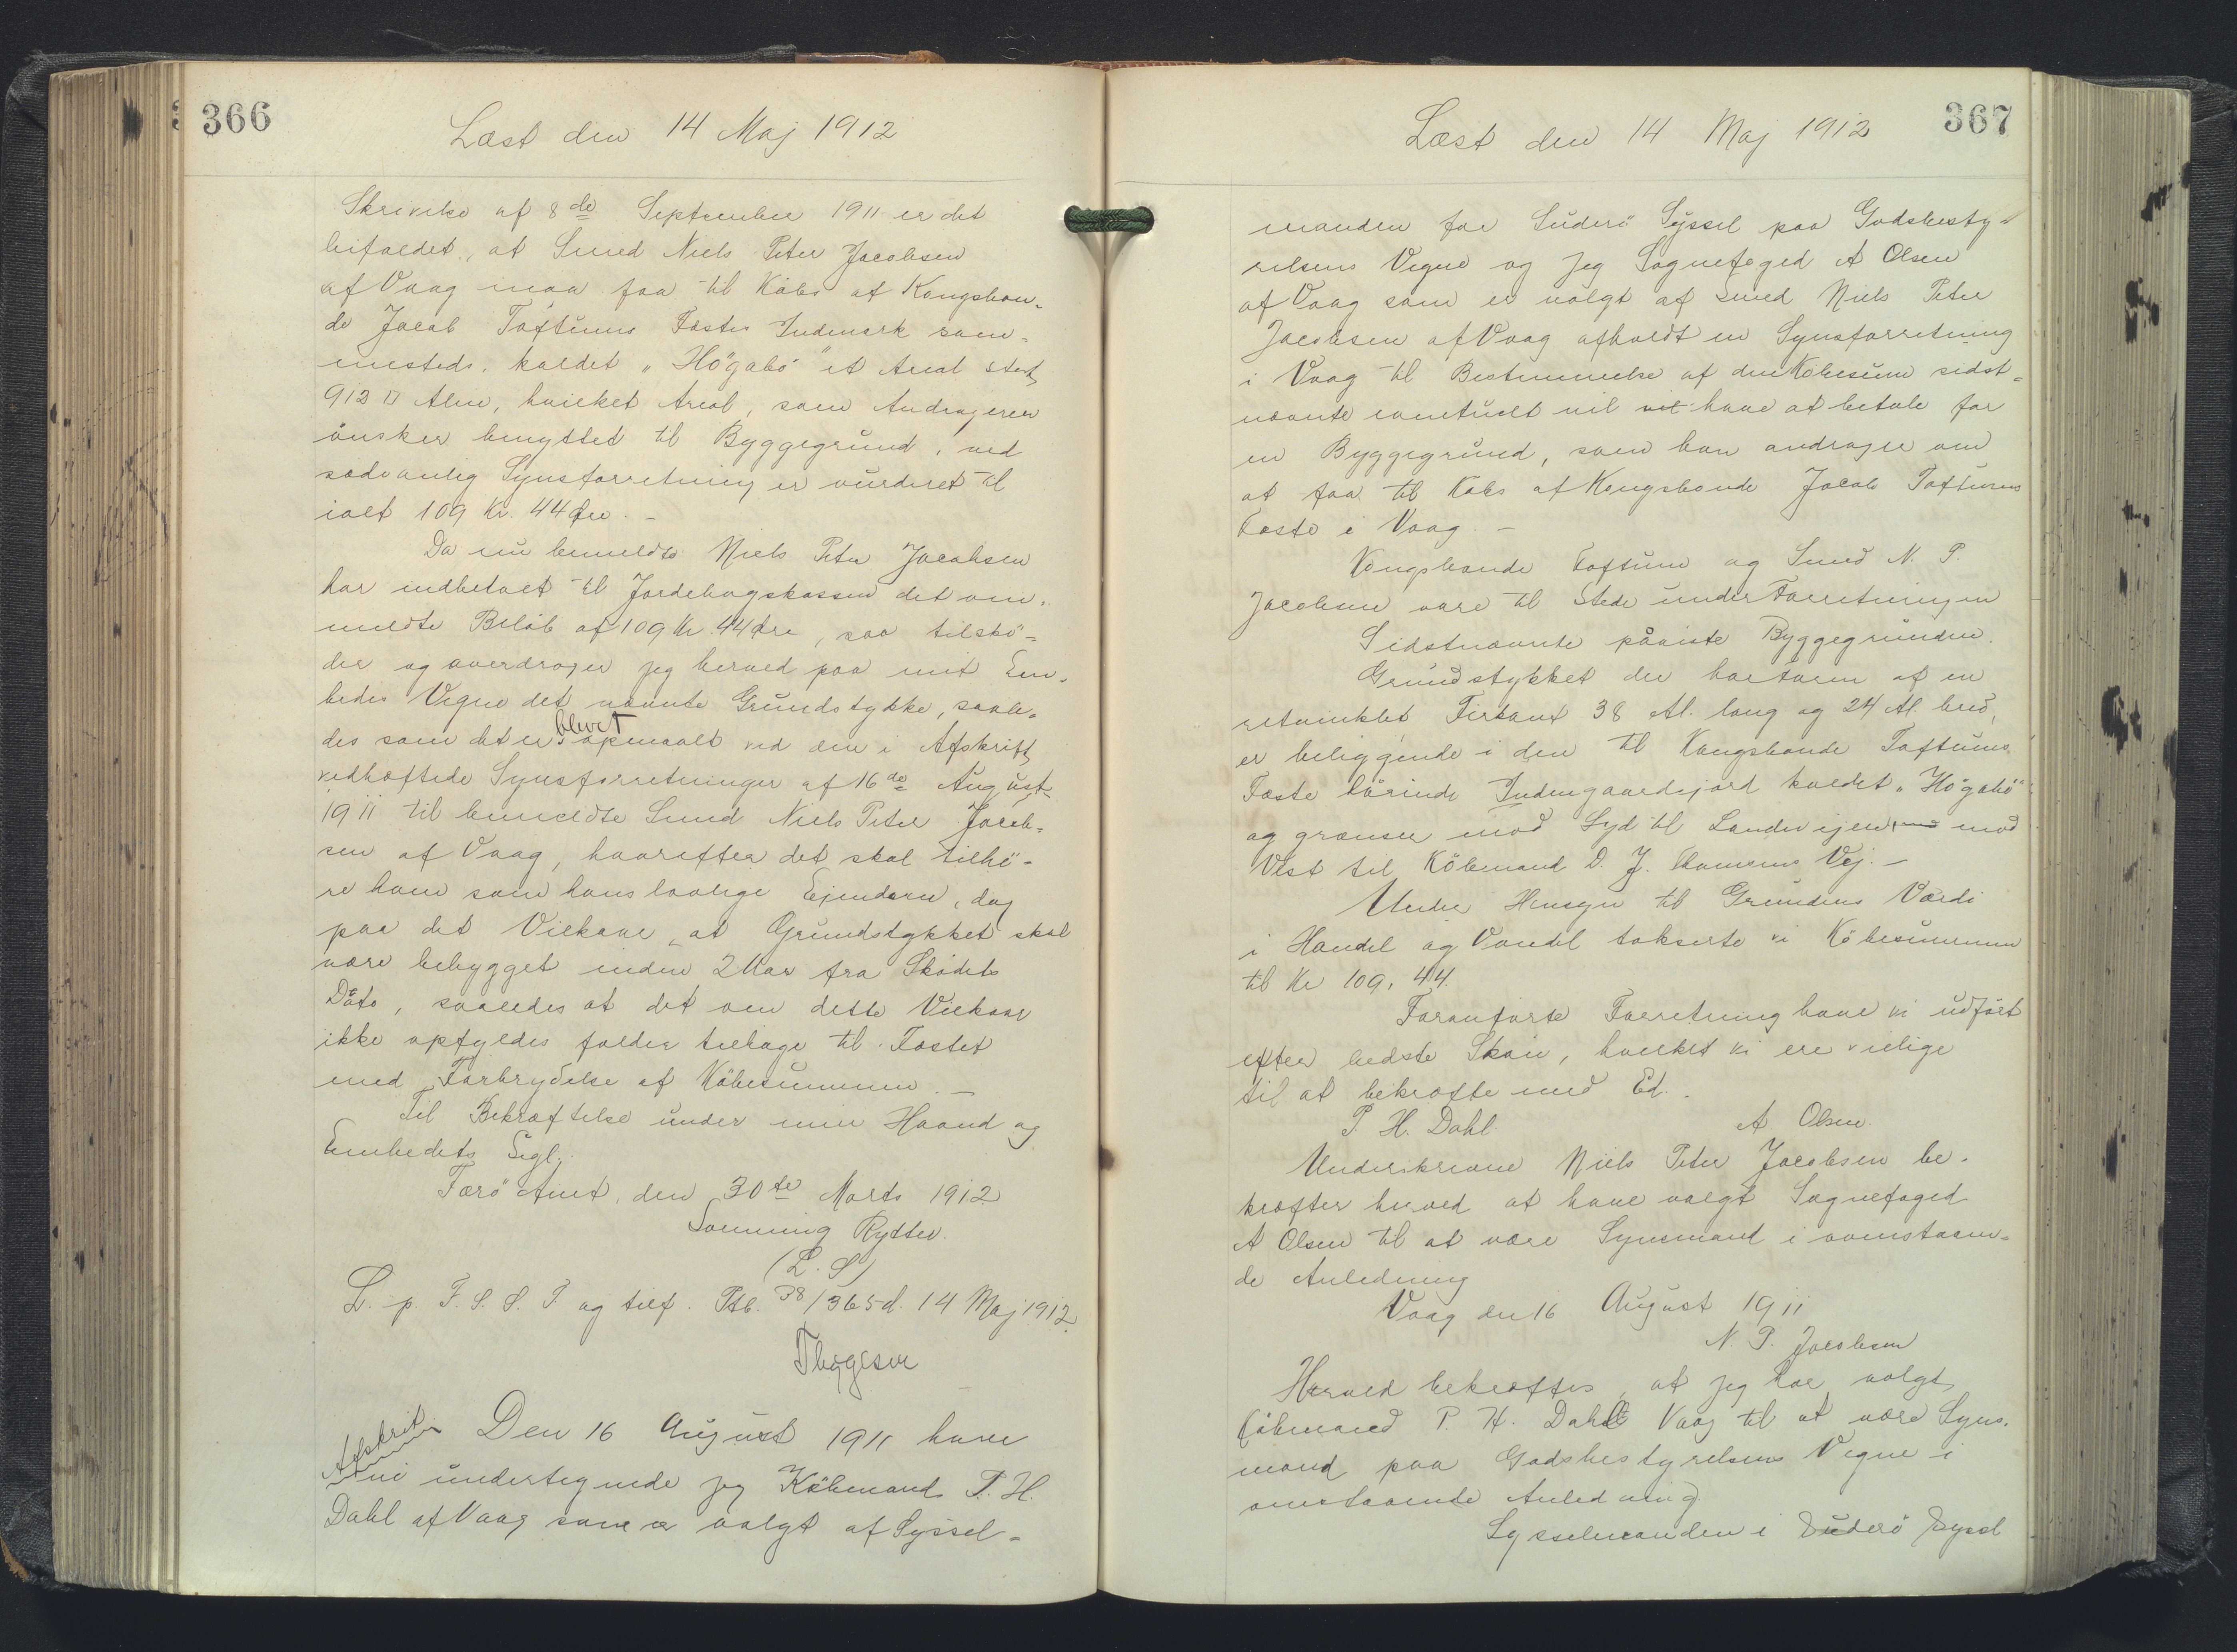 366
Læst den 14 Maj 1912
Skrivelse af 8de September 1911 er det
bifaldet, at Smed Niels Peter Jacobsen
af Vaag maa faa til Købs af Kongsbon-
de Jacob Toftums Fæstes Indmark sam-
mesteds, kaldet "Högabö" et Areal stort
912 □ Alen, hvilket Areal, som Andrageren
ønsker benyttet til Byggegrund, ved
sædvanlig Synsforretning er vurderet til
ialt 109 Kr. 44 Øre. -
Da nu bemeldte Niels Peter Jacobsen
har indbetalt til Jordebogskassen det om-
meldte Beløb af 109 Kr. 44 Øre, saa tilskö-
der og overdrager jeg herved paa mit Em-
bedes Vegne det nævnte Grundstykke, saale-
des som det er blevet opmaalt ved den i Afskrift
vedhæftede Synsforretninger af 16de August
1911 til bemeldte Smed Niels Peter Jacob-
sen af Vaag, hvorefter det skal tilhö-
re ham som hans lovlige Ejendom, dog
paa det Vilkaar, at Grundstykket skal
være bebygget inden 2 Aar fra Skødets
Dato, saaledes at det om dette Vilkaar
ikke opfyldes falder tilbage til Fæstet
med Forbrydelse af Köbesummen. -
Til Bekræftelse under min Haand og
Embedets Segl.
Færö Amt, den 30te Marts 1912
Svenning Rytter.
(L. S)
L. p. F. S. S. T og tilf. Ptb. 38/365 d. 14 Maj 1912.
Thygesen
Afskrift
Den 16 August 1911 have
vi undertegnede jeg Köbmand P. H.
Dahl af Vaag som er valgt af Syssel-
367
Læst den 14 Maj 1912
manden for Suderö Syssel paa Godsbesty-
relsens Vegne og jeg Sognefoged A Olsen
af Vaag som er valgt af Smed Niels Peter
Jacobsen af Vaag afholdt en Synsforretning
i Vaag til Bestemmelse af den Købesum sidst-
nævnte eventuelt vil have at betale for
en Byggegrund, som han andrager om
at faa til Købs af Kongsbonde Jacob Toftums
Fæste i Vaag. -
Kongsbonde Toftum og Smed N. P.
Jacobsen vare til Stede under Forretningen
Sidstnævnte påviste Byggegrunden.
Grundstykket der har Form af en
retvinklet Firkant 38 Al. lang og 24 Al. bred,
er beliggende i den til Kongsbonde Toftums
Fæste hörende Indengaardsjord kaldet "Högabö"
og grænser mod Syd til Landevejen, mod
Vest til Köbmand D. J. Thomsens Vej. -
Under Hensyn til Grundens Værdi
i Handel og Vandel takserte vi Köbesummen
til Kr 109, 44.
Foranførte Forretning have vi udført
efter bedste Skøn, hvilket vi ere villige
til at bekræfte med Ed.
P. H. Dahl. A. Olsen.
Underskrevne Niels Peter Jacobsen be-
kræfter herved at have valgt Sognefoged
A Olsen til at være Synsmand i ovenstaaen-
de Anledning
Vaag den 16 August 1911
N. P. Jacobsen
Herved bekræftes, at jeg har valgt
Købmand P. H. Dahl Vaag til at være Syns-
mand paa Godsbestyrelsens Vegne i
omstaaende Anledning.
Sysselmanden i Suderö Syssel